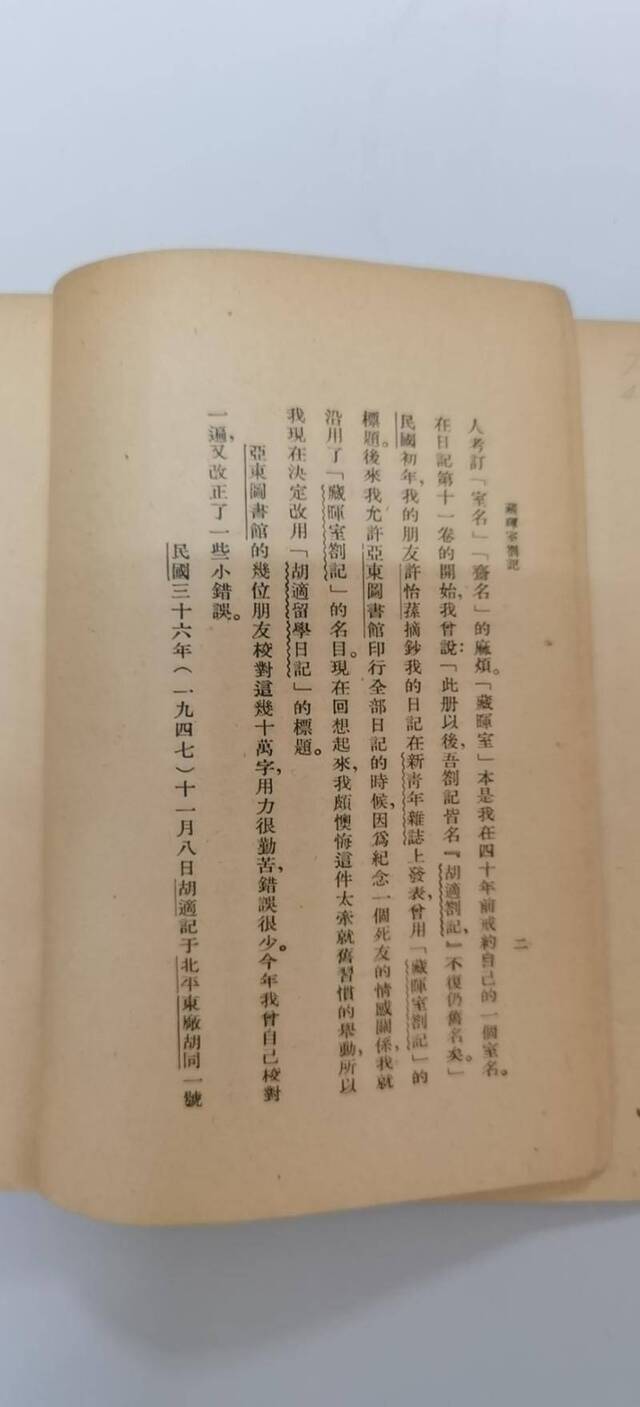 藏暉室劄記
二
人考訂「室名」「齋名」的麻煩。「藏暉室」本是我在四十年前戒約自己的一個室名。
在日記第十一卷的開始，我曾說：「此册以後，吾劄記皆名『胡適劄記』，不復仍舊名矣。」
民國初年，我的朋友許怡蓀摘鈔我的日記在新靑年雜誌上發表，曾用「藏暉室劄記」的
標題。後來我允許亞東圖書館印行全部日記的時候，因爲紀念一個死友的情感關係，我就
沿用了「藏暉室劄記」的名目。現在回想起來，我頗懊悔這件太牽就舊習慣的舉動，所以
我現在決定改用「胡適留學日記」的標題。
亞東圖書館的幾位朋友校對這幾十萬字，用力很勤苦，錯誤很少。今年我曾自己校對
一遍，又改正了一些小錯誤。
民國三十六年（一九四七）十一月八日胡適記于北平東廠胡同一號